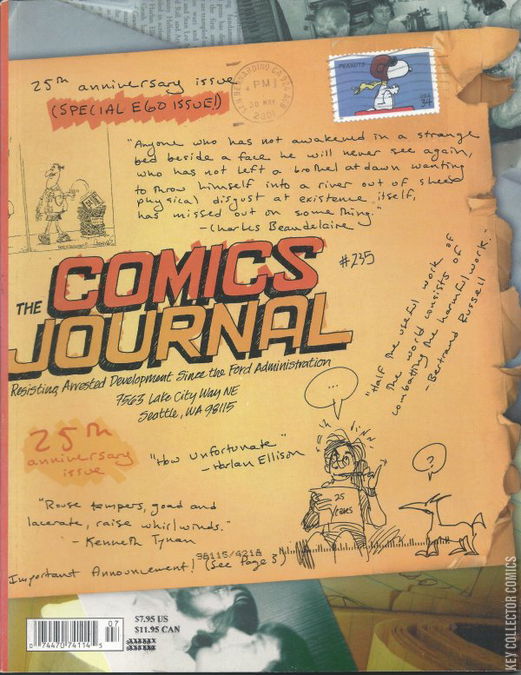 25th anniversary issue
(SPECIAL EGO ISSUE!)
PM
30 MAY
2001
PEANUTS
USA
34
"Anyone who has not awakened in a strange
bed beside a face he will never see again,
who has not left a brothel at dawn wanting
to throw himself into a river out of sheer
physical disgust at existence itself,
has missed out on something."
- Charles Beaudelaire
#235
THE COMICS
JOURNAL
Resisting Arrested Development Since the Ford Administration
7563 Lake City Way NE
Seattle, WA 98115
"Half the useful work of
the world consists of
combatting the harmful work."
- Bertrand Russell
25th
anniversary
issue
"How Unfortunate"
- Harlan Ellison
...
?
25
Years
"Rouse tempers, goad and
lacerate, raise whirlwinds."
- Kenneth Tynan
98115/4218
Important Announcement! (See Page 3)
07
0 74470 74114 5
$7.95 US
$11.95 CAN
KEY COLLECTOR COMICS